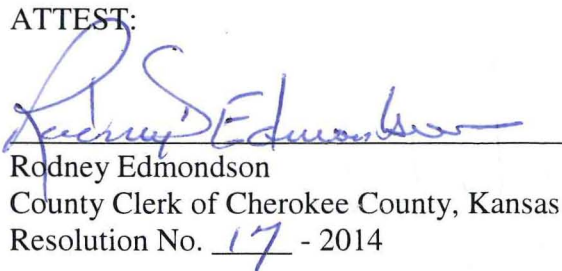 ATTEST:
Rodney D Edmondson
Rodney Edmondson
County Clerk of Cherokee County, Kansas
Resolution No. 17 - 2014